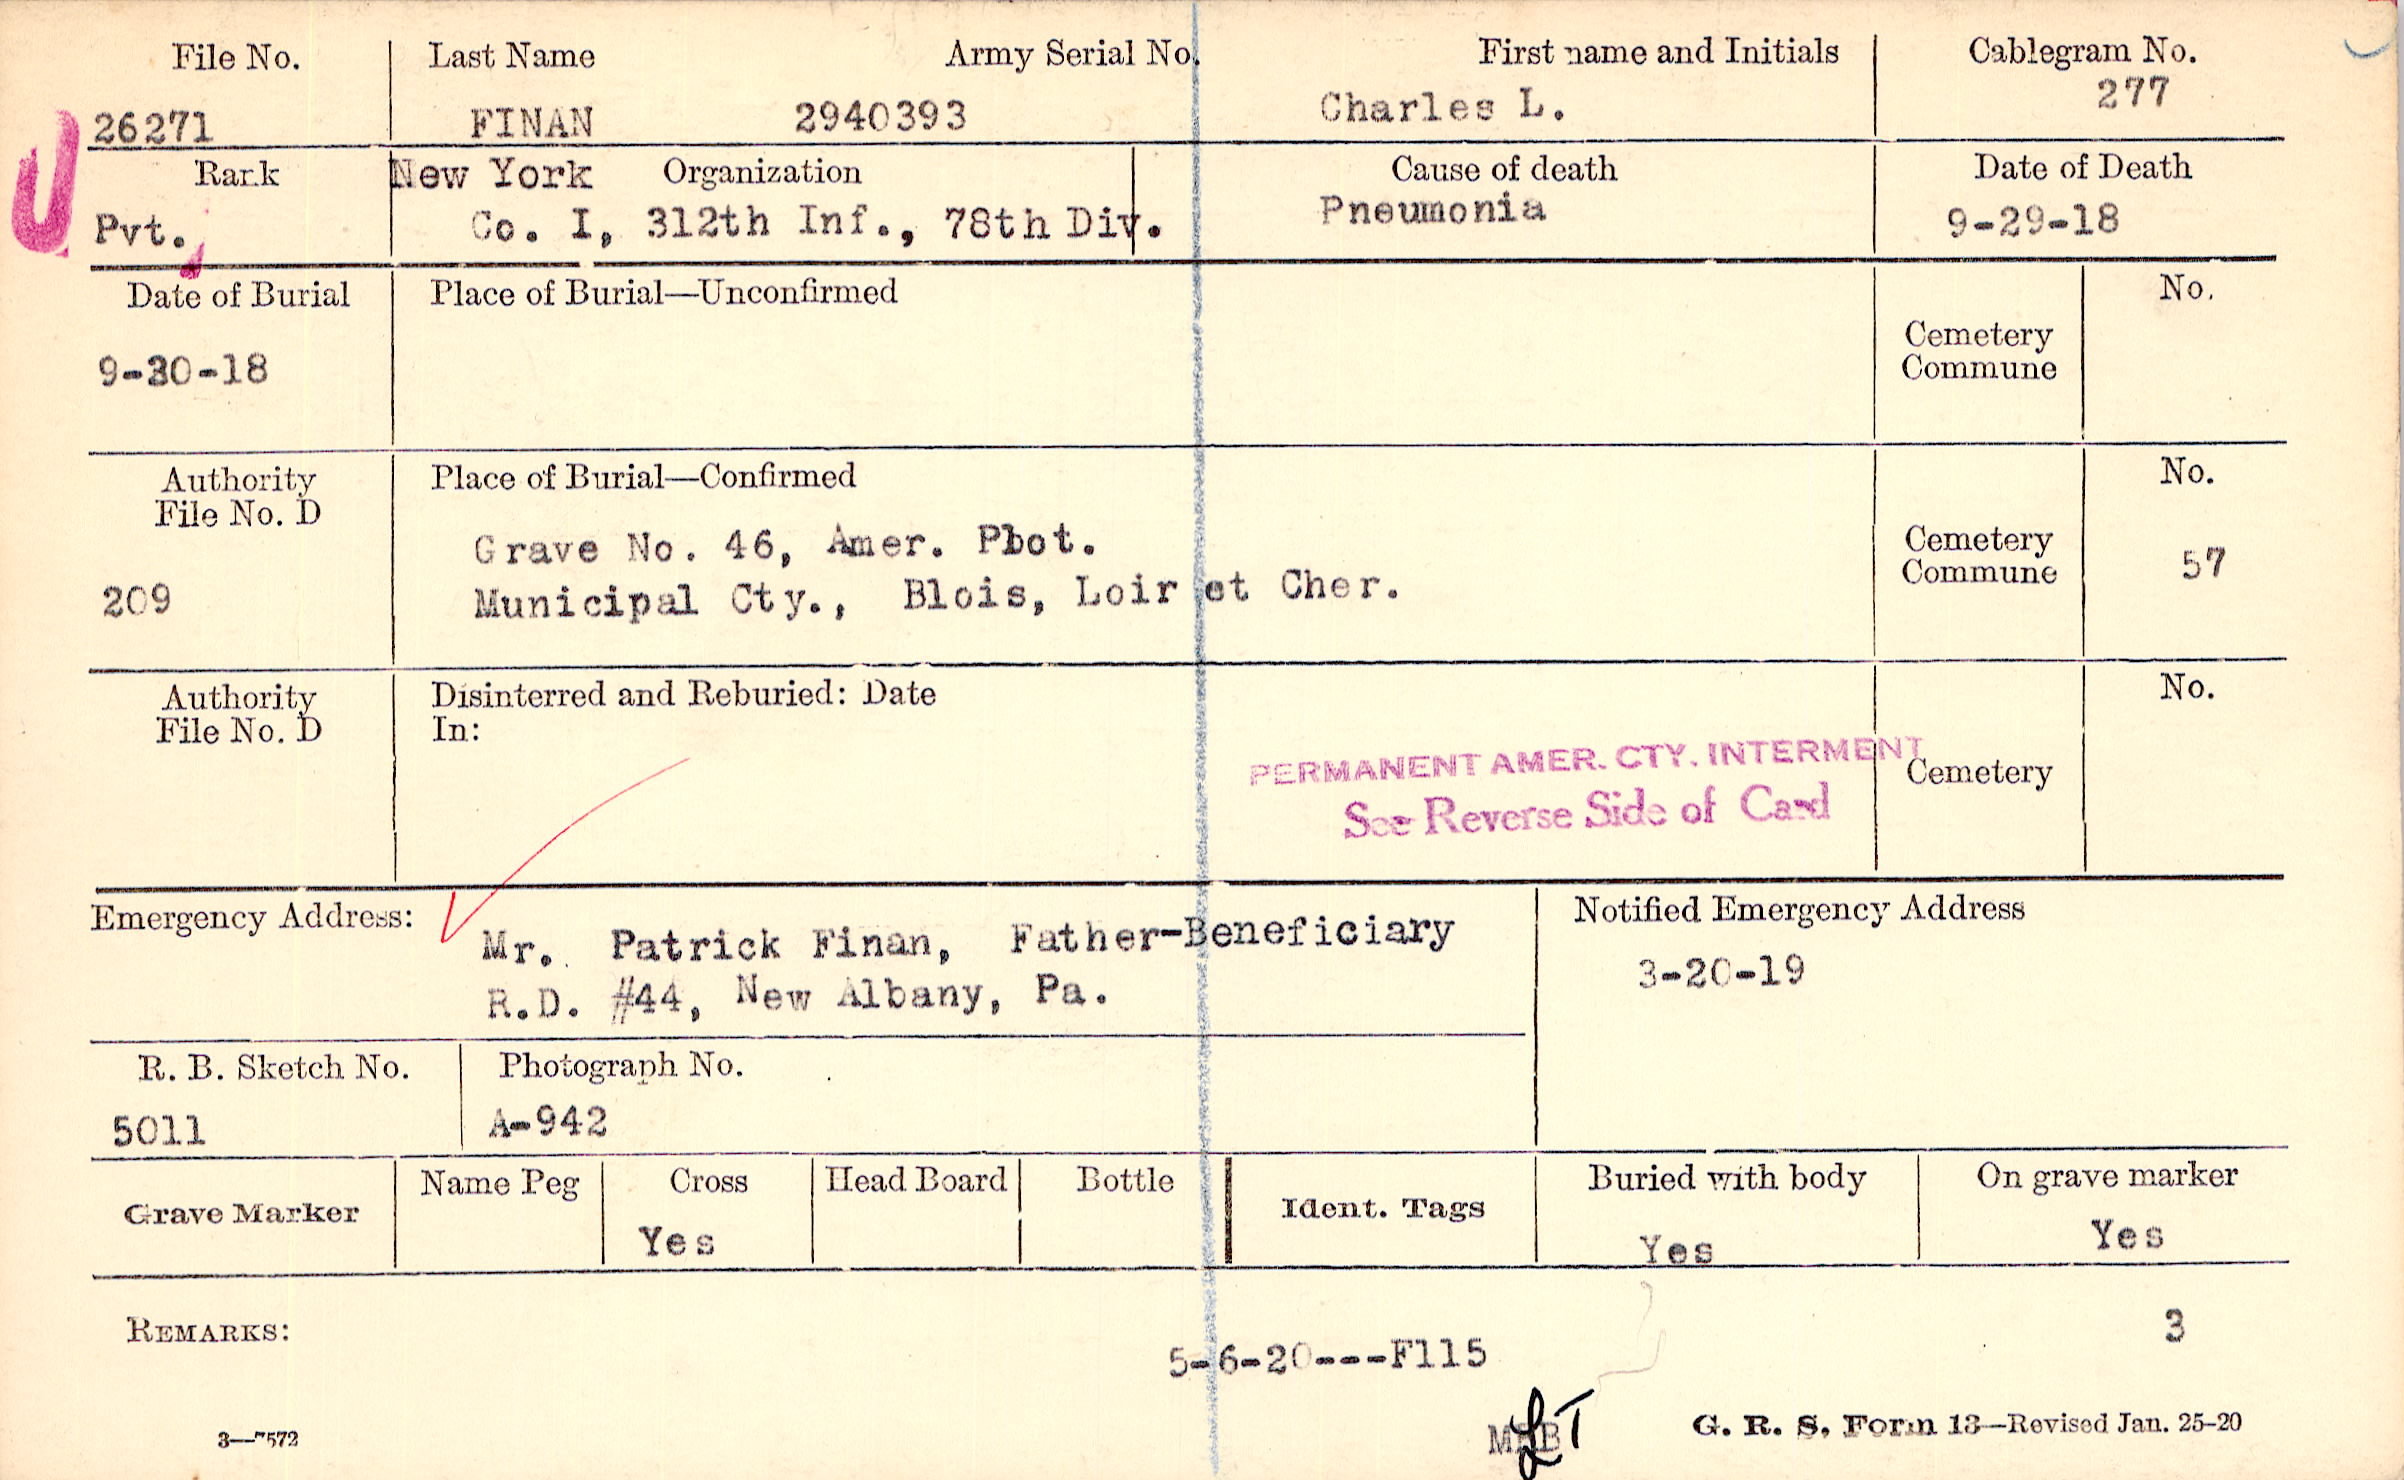 File No. Last Name Army Serial No. First name and Initials Cablegram No.
26271 FINAN 2940393 Charles L. 277
Rank New York Organization Cause of death Date of Death
Pvt. Co. I, 312th Inf., 78th Div. Pneumonia 9-29-18
Date of Burial Place of Burial—Unconfirmed No.
Cemetery
Commune
9-30-18
Authority Place of Burial—Confirmed No.
File No. D
Grave No. 46, Amer. Plot.
Cemetery
Commune 57
209 Municipal Cty., Blois, Loir et Cher.
Authority Disinterred and Reburied: Date No.
File No. D In:
PERMANENT AMER. CTY. INTERMENT
Cemetery
See Reverse Side of Card
Emergency Address: Notified Emergency Address
Mr. Patrick Finan, Father-Beneficiary
3-20-19
R.D. #44, New Albany, Pa.
R. B. Sketch No. Photograph No.
5011 A-942
Grave Marker Name Peg Cross Head Board Bottle Ident. Tags Buried with body On grave marker
Yes Yes Yes
REMARKS: 3
5-6-20---F115
3—7572 G. R. S. Form 13—Revised Jan. 25-20